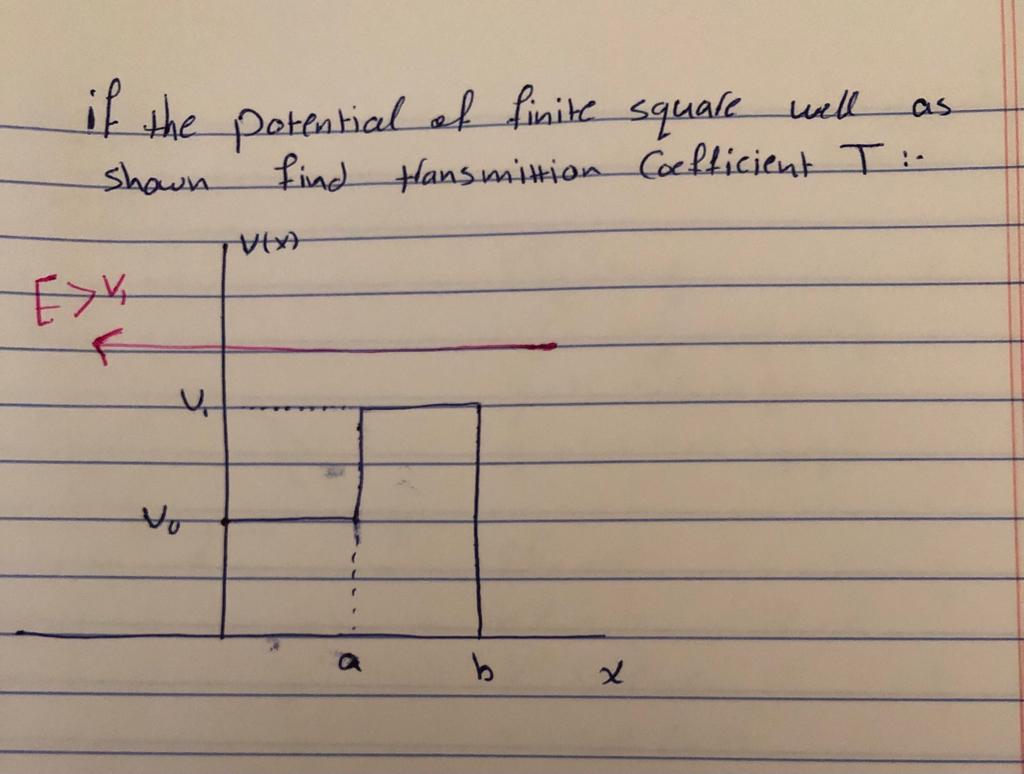 if the potential of finite square well as
shown find transmittion Coefficient T :-
V(x)
E > V₁
V₁
V₀
a
b
x